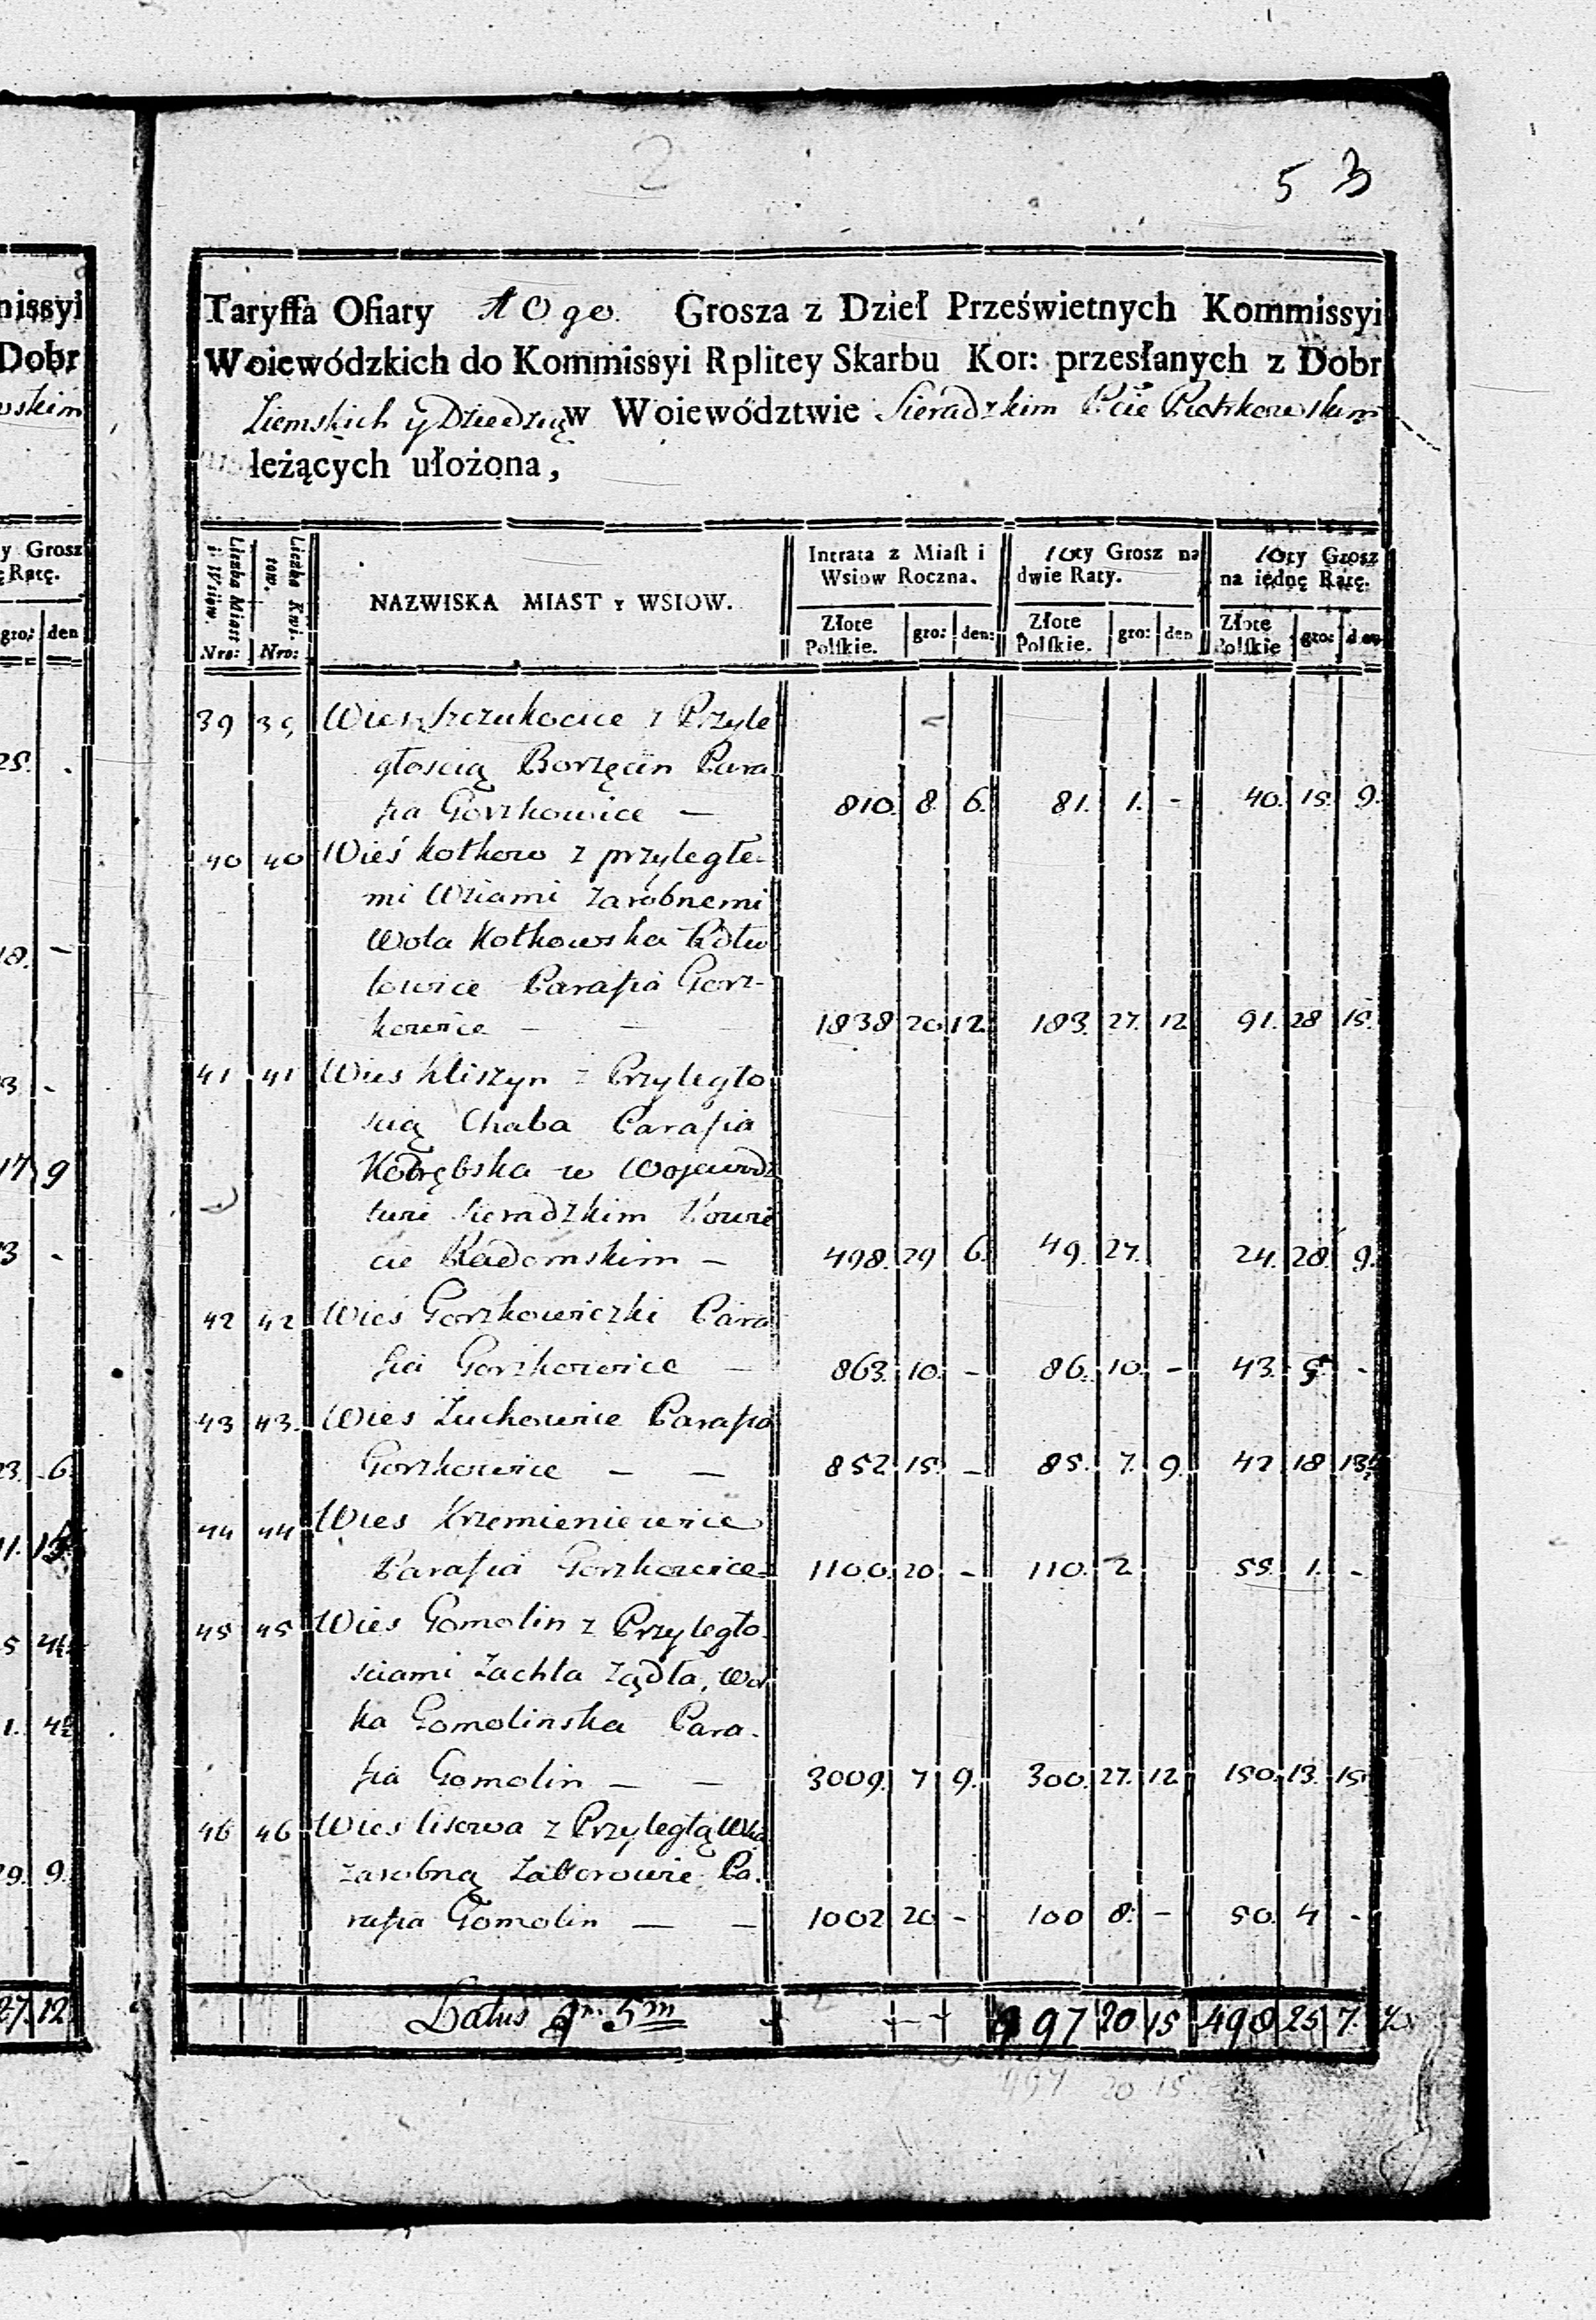 2
5 3
Taryffa Ofiary 10go. Grosza z Dzieł Prześwietnych Kommissyi
Woiewódzkich do Kommissyi Rplitey Skarbu Kor: przesłanych z Dobr
Ziemskich y Dziedzią w Woiewództwie Sieradzkim Pcie Piotrkowskim
leżących ułożona,
Liczba Miast i Wsiow. Nro:
Liczba Kwitow. Nro:
NAZWISKA MIAST Y WSIOW.
Intrata z Miast i Wsiow Roczna.
10ty Grosz na dwie Raty.
10ty Grosz na iednę Ratę.
Złote Polskie. gro: den: Złote Polskie. gro: den Złote Polskie gro: den
39 39 Wies Szczukocice z Przyle
głoscią Borzęcin Para
fia Gorzkowice — 810. 8. 6. 81. 1. - 40. 15. 9.
40 40 Wieś Kotkow z przyległe-
mi Wsiami zarobnemi
Wola Kotkowska
lowice Parafia Gorz-
kowice — — 1838 20 12 183. 27. 12 91. 28 15.
41 41 Wies Kliszyn z Przyległo
scią Chaba Parafia
w Wojewodz
twie Sieradzkim Powie
cie Radomskim — 498. 29 6. 49. 27. 24. 28. 9.
42 42 Wieś Gorzkowiczki Para
fia Gorzkowice — 863. 10. - 86. 10. - 43. 5 -
43 43. Wies Żuchowice Parafia
Gorzkowice — — 852 15. - 85. 7. 9. 42 18 13½
44 44 Wies Krzemieniewice
Parafia Gorzkowice 1100. 20 - 110. 2 55. 1. -
45 45 Wies Gomolin z Przyległo
sciami Żachta Żądła, Wol
ka Gomolinska Para-
fia Gomolin — — 3009. 7 9. 300. 27. 12 150. 13. 15
46 46 Wies Lisowa z Przyległą Wsią
zarobną Zaborowie Pa-
rafia Gomolin — — 1002 20 - 100 8. - 50. 4 -
Latus 5m 997 20 15 498 25 7.½
497 20 15